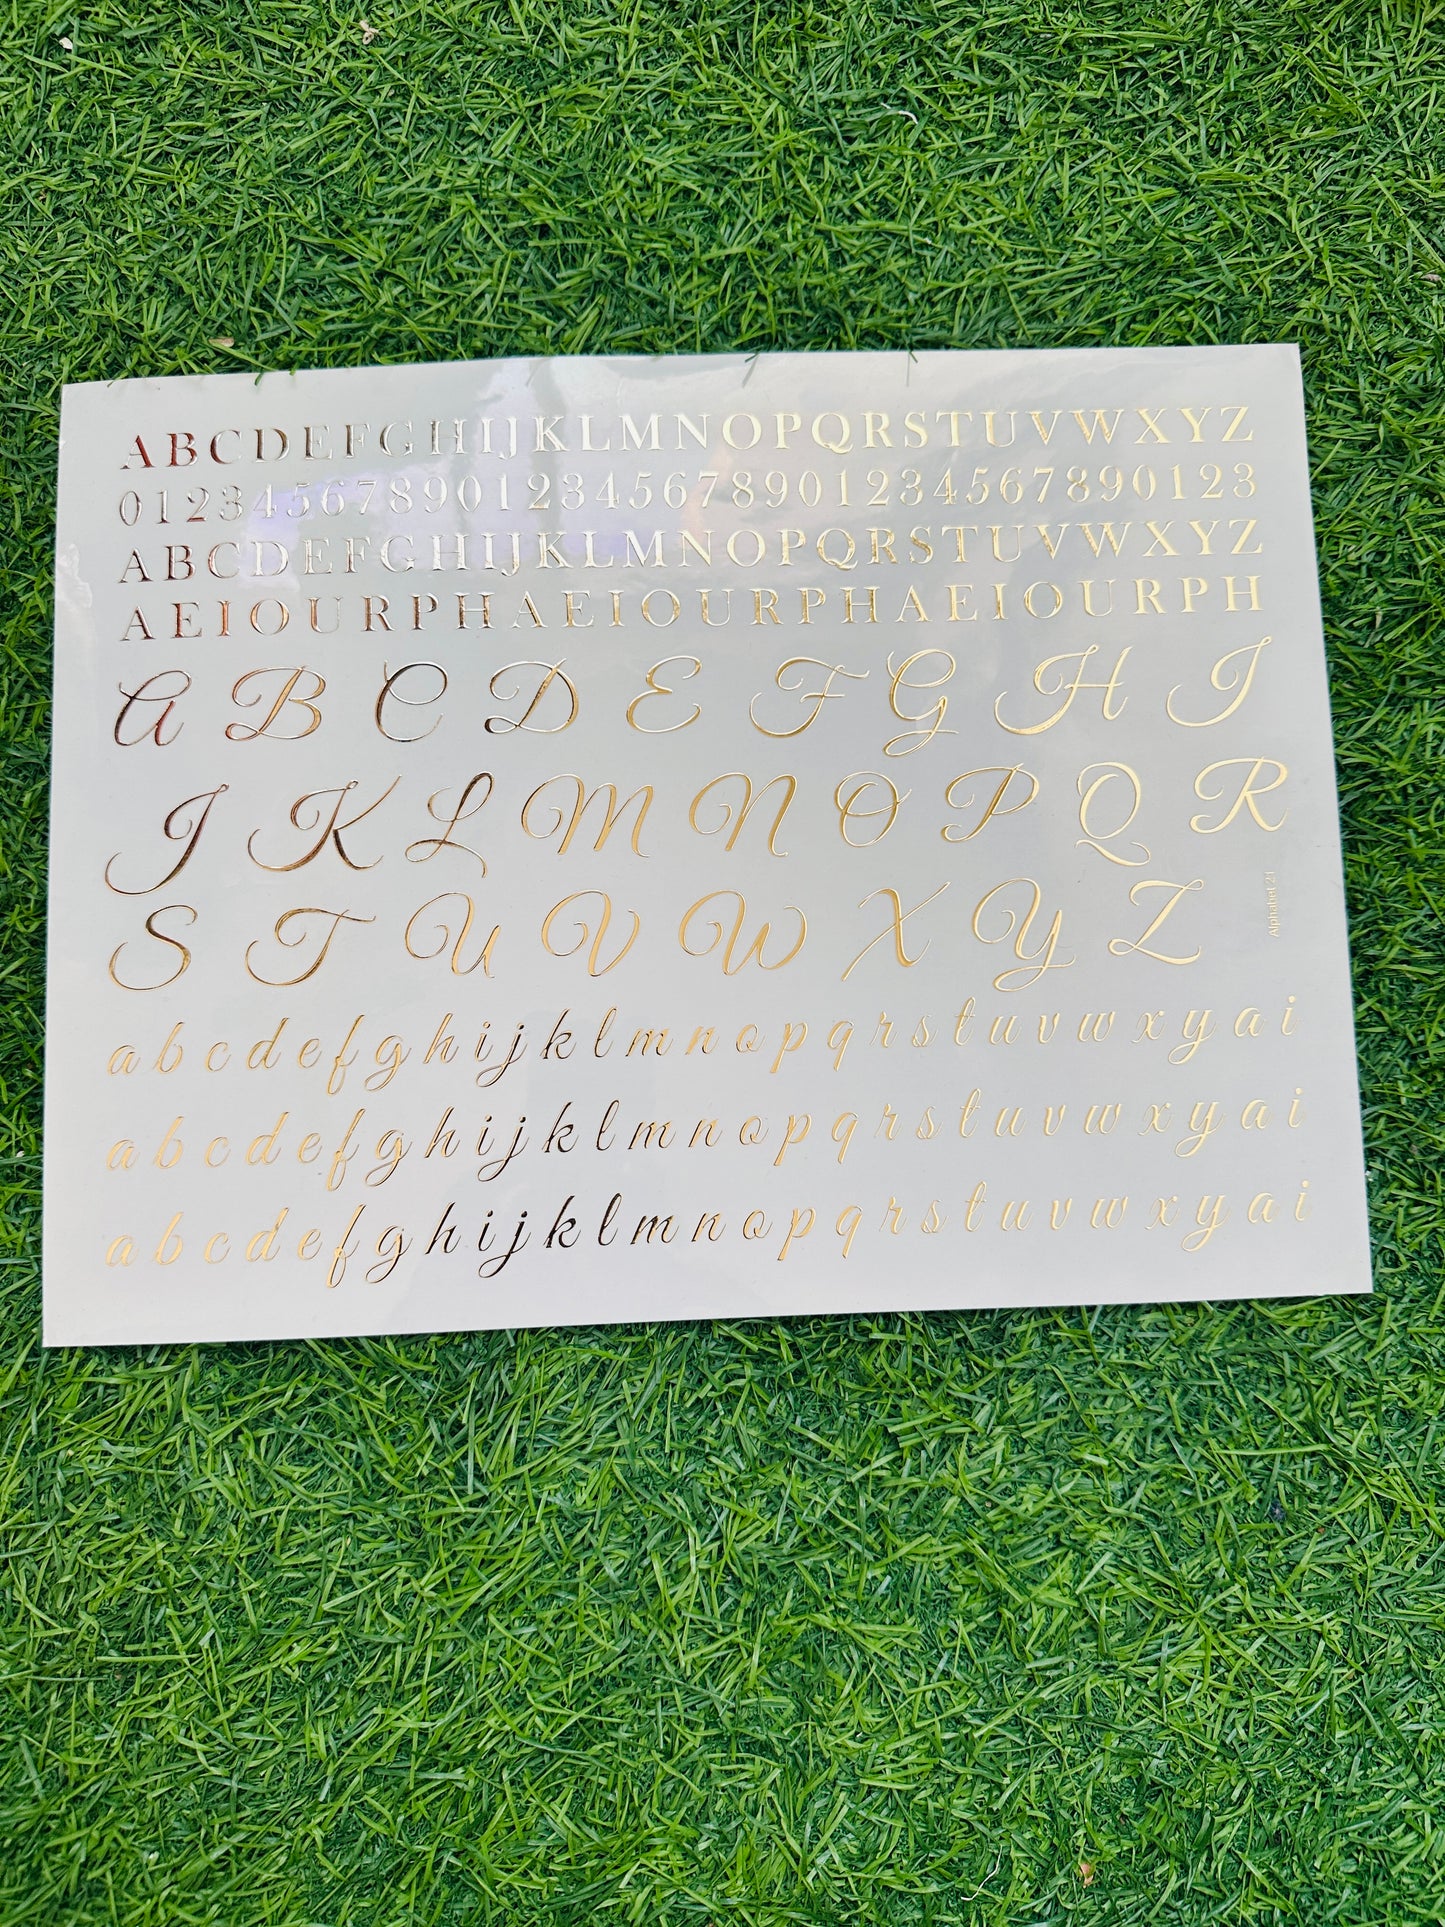 ABCDEFGHIJKLMNOPQRSTUVWXYZ
0123456789012345678901234567890123
ABCDEFGHIJKLMNOPQRSTUVWXYZ
AEIOURPHAEIOURPHAEIOURPH
A B C D E F G H I
J K L M N O P Q R
S T U V W X Y Z
Alphabet 21
a b c d e f g h i j k l m n o p q r s t u v w x y a i
a b c d e f g h i j k l m n o p q r s t u v w x y a i
a b c d e f g h i j k l m n o p q r s t u v w x y a i